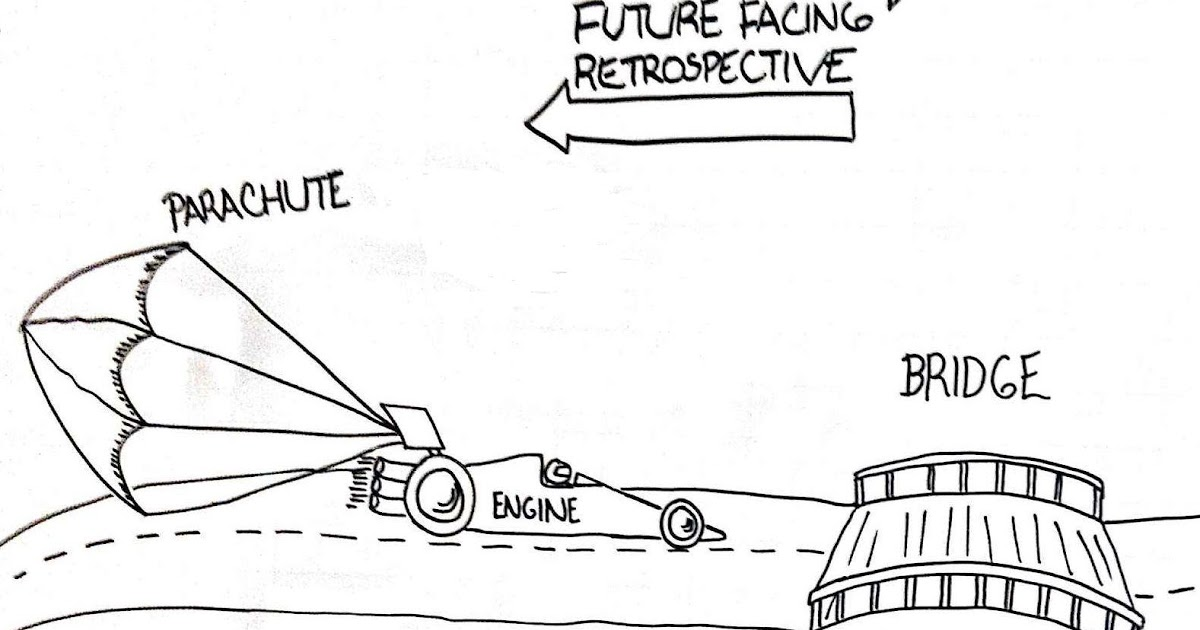 FUTURE FACING
RETROSPECTIVE
PARACHUTE
BRIDGE
ENGINE